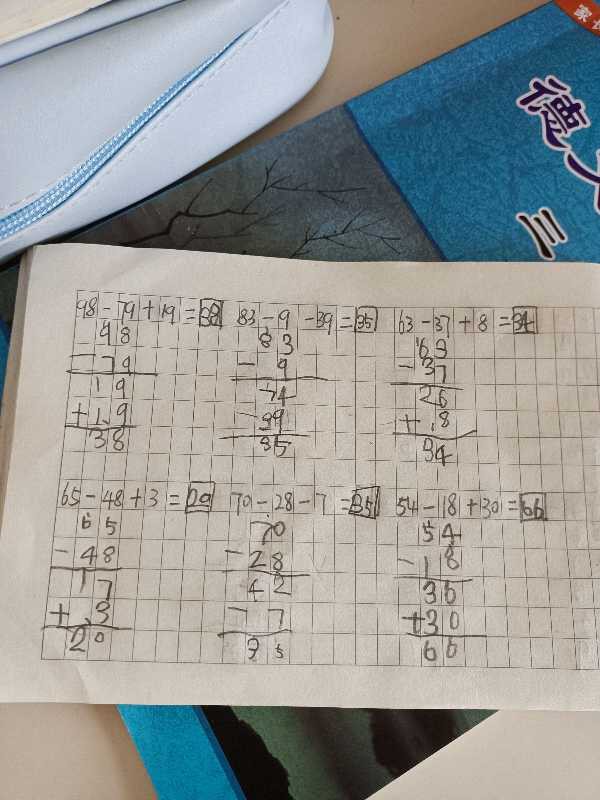 家长
德
三
98-79+19=38 83-9-39=35 63-37+8=34
98 83 63
-79 -9 -37
19 74 26
+19 -39 +8
38 35 34
65-48+3=20 70-28-7=35 54-18+30=66
65 70 54
-48 -28 -18
17 42 36
+3 -7 +30
20 35 66